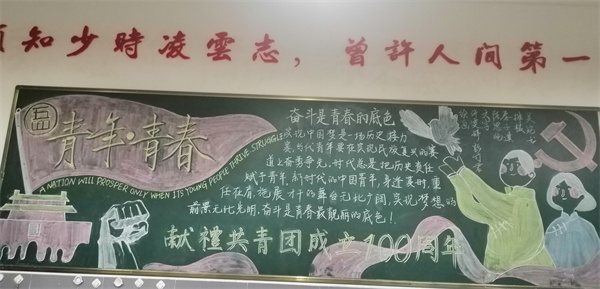 须知少時凌雲志，曾許人间第一
五四
青年·青春
A NATION WILL PROSPER ONLY WHEN ITS YOUNG PEOPLE THRIVE STRUGGLE
奋斗是青春的底色
实现中国梦是一场历史接力
赛,当代青年要在实现民族复兴的赛
道上奋勇争先。时代总是把历史责任
赋予青年。新时代的中国青年,身逢其时,重
任在肩,施展才干的舞台无比广阔,实现梦想的
前景无比光明.奋斗是青春最靓丽的底色!
献禮共青团成立100周年